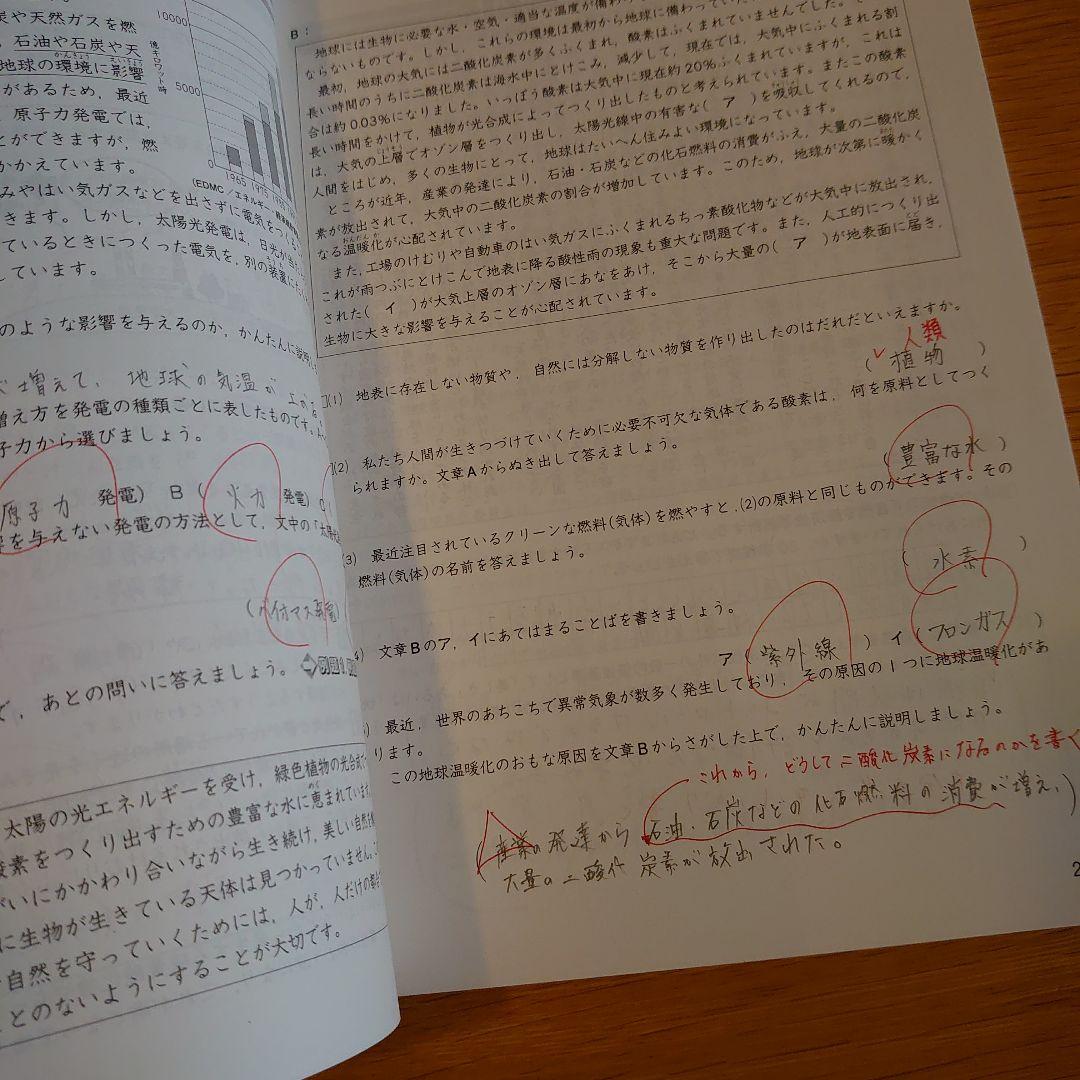 炭や天然ガスを燃
，石油や石炭や天
地球の環境に影響
かんきょう
えいきょう
があるため，最近
，原子力発電では，
とができますが，燃
かかえています。
10000
5000
0
億キロワット時
1965
(EDMC／エネルギー
みやはい気ガスなどを出さずに電気をつくる
きます。しかし，太陽光発電は，日光が
ているときにつくった電気を，別の装置に
しています。
のような影響を与えるのか，かんたんに説明
増えて，地球の気温が
増え方を発電の種類ごとに表したものです。
子力から選びましょう。
原子力 発電) B ( 火力 発電) C (
を与えない発電の方法として，文中の「太陽
で，あとの問いに答えましょう。
太陽の光エネルギーを受け，緑色植物の光合成
酸素をつくり出すための豊富な水に恵まれています
めぐ
がいにかかわり合いながら生き続け，美しい自然を
に生物が生きている天体は見つかっていません。
自然を守っていくためには，人が，人だけの
ことのないようにすることが大切です。
B：
地球には生物に必要な水・空気・適当な温度が備わ
ならないものです。しかし，これらの環境は最初から地球に備わってい
最初，地球の大気には二酸化炭素が多くふくまれ，酸素はふくまれていませんでした。
長い時間のうちに二酸化炭素は海水中にとけこみ，減少して，現在では，大気中にふくまれる割
合は約0.03%になりました。いっぽう酸素は大気中に現在約20%ふくまれていますが，これは
長い時間をかけて，植物が光合成によってつくり出したものと考えられています。またこの酸素
は，大気の上層でオゾン層をつくり出し，太陽光線中の有害な( ア )を吸収してくれるので，
人間をはじめ，多くの生物にとって，地球はたいへん住みよい環境になっています。
ところが近年，産業の発達により，石油・石炭などの化石燃料の消費がふえ，大量の二酸化炭
素が放出されて，大気中の二酸化炭素の割合が増加しています。このため，地球が次第に暖かく
なる温暖化が心配されています。
おんだん
また，工場のけむりや自動車のはい気ガスにふくまれるちっ素酸化物などが大気中に放出され，
これが雨つぶにとけこんで地表に降る酸性雨の現象も重大な問題です。また，人工的につくり出
された( イ )が大気上層のオゾン層にあなをあけ，そこから大量の( ア )が地表面に届き，
生物に大きな影響を与えることが心配されています。
(1) 地表に存在しない物質や，自然には分解しない物質を作り出したのはだれだといえますか。
人類
( 植物 )
(2) 私たち人間が生きつづけていくために必要不可欠な気体である酸素は，何を原料としてつく
られますか。文章Aからぬき出して答えましょう。
( 豊富な水 )
(3) 最近注目されているクリーンな燃料(気体)を燃やすと，(2)の原料と同じものができます。その
燃料(気体)の名前を答えましょう。
( 水素 )
文章Bのア，イにあてはまることばを書きましょう。
ア ( 紫外線 ) イ ( フロンガス )
最近，世界のあちこちで異常気象が数多く発生しており，その原因の1つに地球温暖化があ
ります。
この地球温暖化のおもな原因を文章Bからさがした上で，かんたんに説明しましょう。
これから，どうして二酸化炭素になるのかを書く
産業の発達から石油，石炭などの化石燃料の消費が増え，
大量の二酸化炭素が放出された。
2